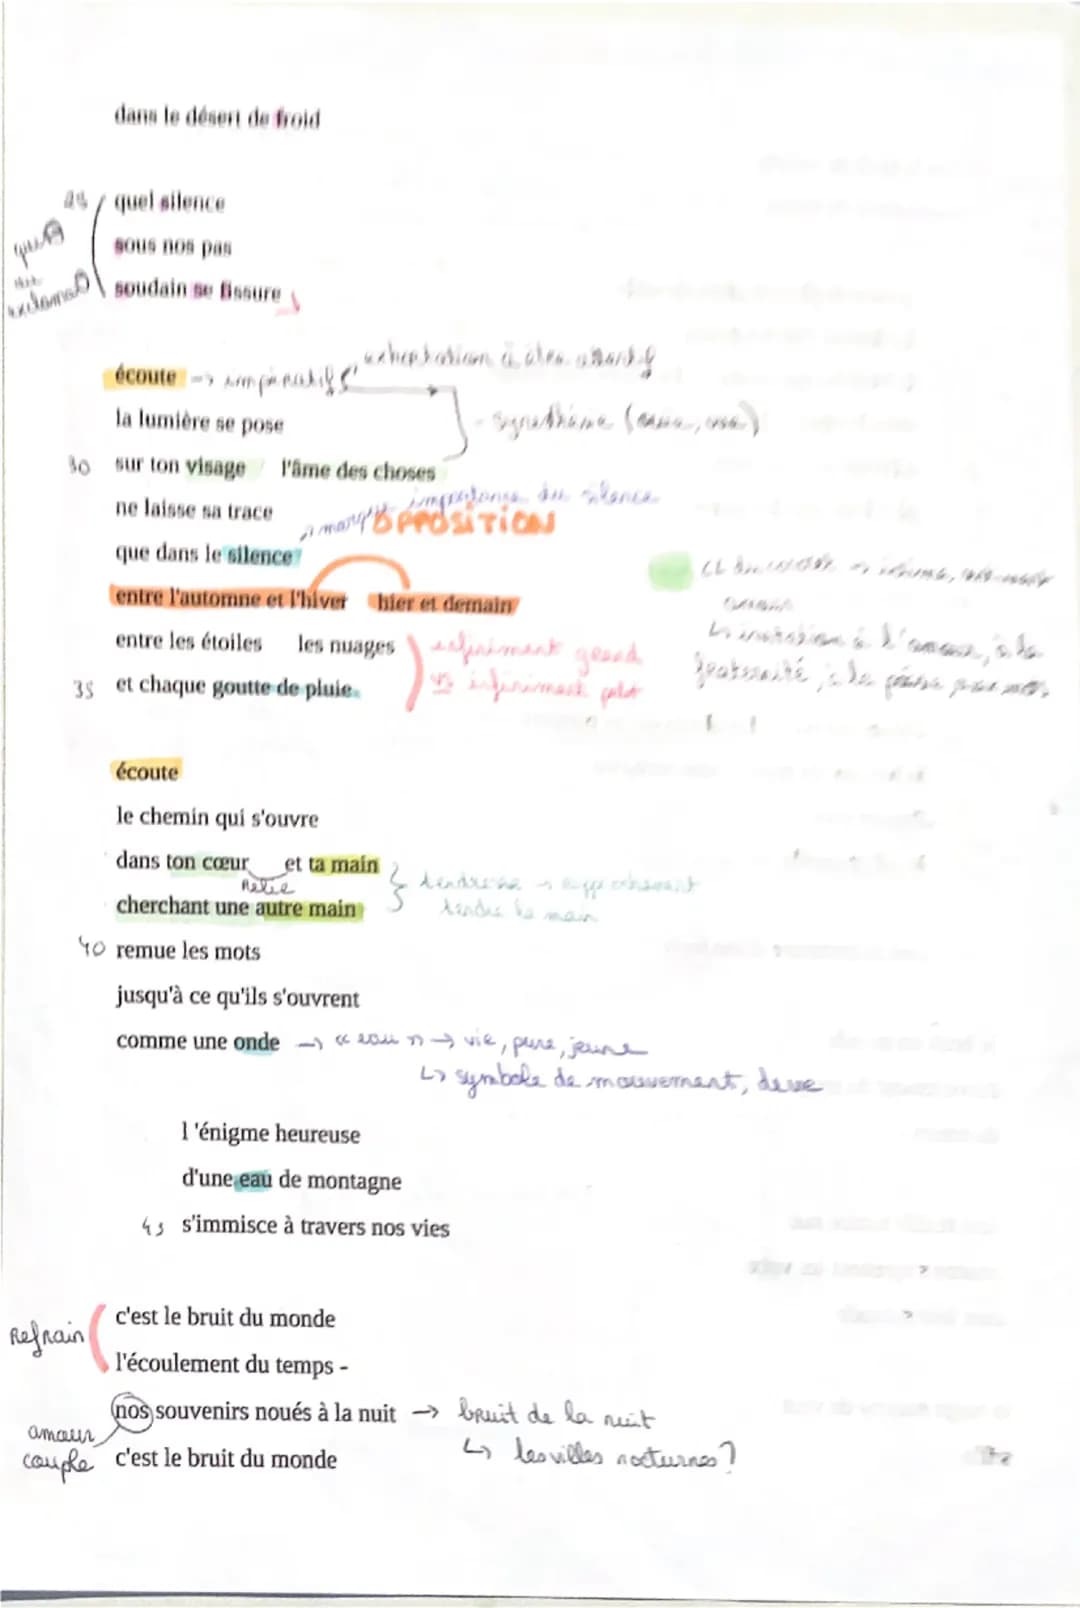 dans le désert de froid
25 quel silence
sous nos pas
soudain se fissure
écoute -> impératif exhortation à être attentif
la lumière se pose
synesthésie (ouïe, vue)
30 sur ton visage / l'âme des choses
ne laisse sa trace
marque importance du silence
OPPOSITION
que dans le silence
entre l'automne et l'hiver hier et demain
entre les étoiles les nuages
infiniment grand
vs infiniment petit
35 et chaque goutte de pluie.
-> intime,
↳ invitation à l'amour, à la
fraternité, à la
écoute
le chemin qui s'ouvre
dans ton cœur et ta main
Relie
tendresse -> rapprochement
tendre la main
cherchant une autre main
40 remue les mots
jusqu'à ce qu'ils s'ouvrent
comme une onde -> « eau » -> vie, pure, jeune
↳ symbole de mouvement,
l 'énigme heureuse
d'une eau de montagne
45 s'immisce à travers nos vies
Refrain
c'est le bruit du monde
l'écoulement du temps -
nos souvenirs noués à la nuit -> bruit de la nuit
↳ les villes nocturnes?
amour
couple
c'est le bruit du monde